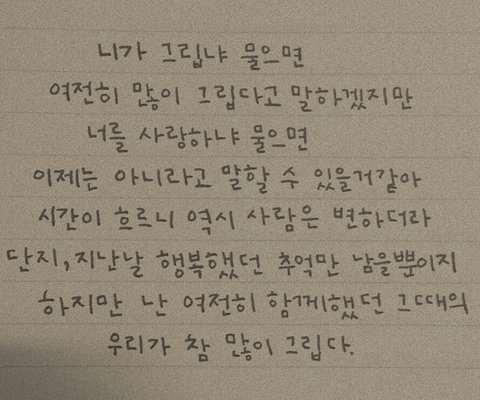 니가 그립냐 물으면
여전히 많이 그립다고 말하겠지만
너를 사랑하냐 물으면
이제는 아니라고 말할 수 있을거같아
시간이 흐르니 역시 사람은 변하더라
단지, 지난날 행복했던 추억만 남을뿐이지
하지만 난 여전히 함께했던 그때의
우리가 참 많이 그립다.